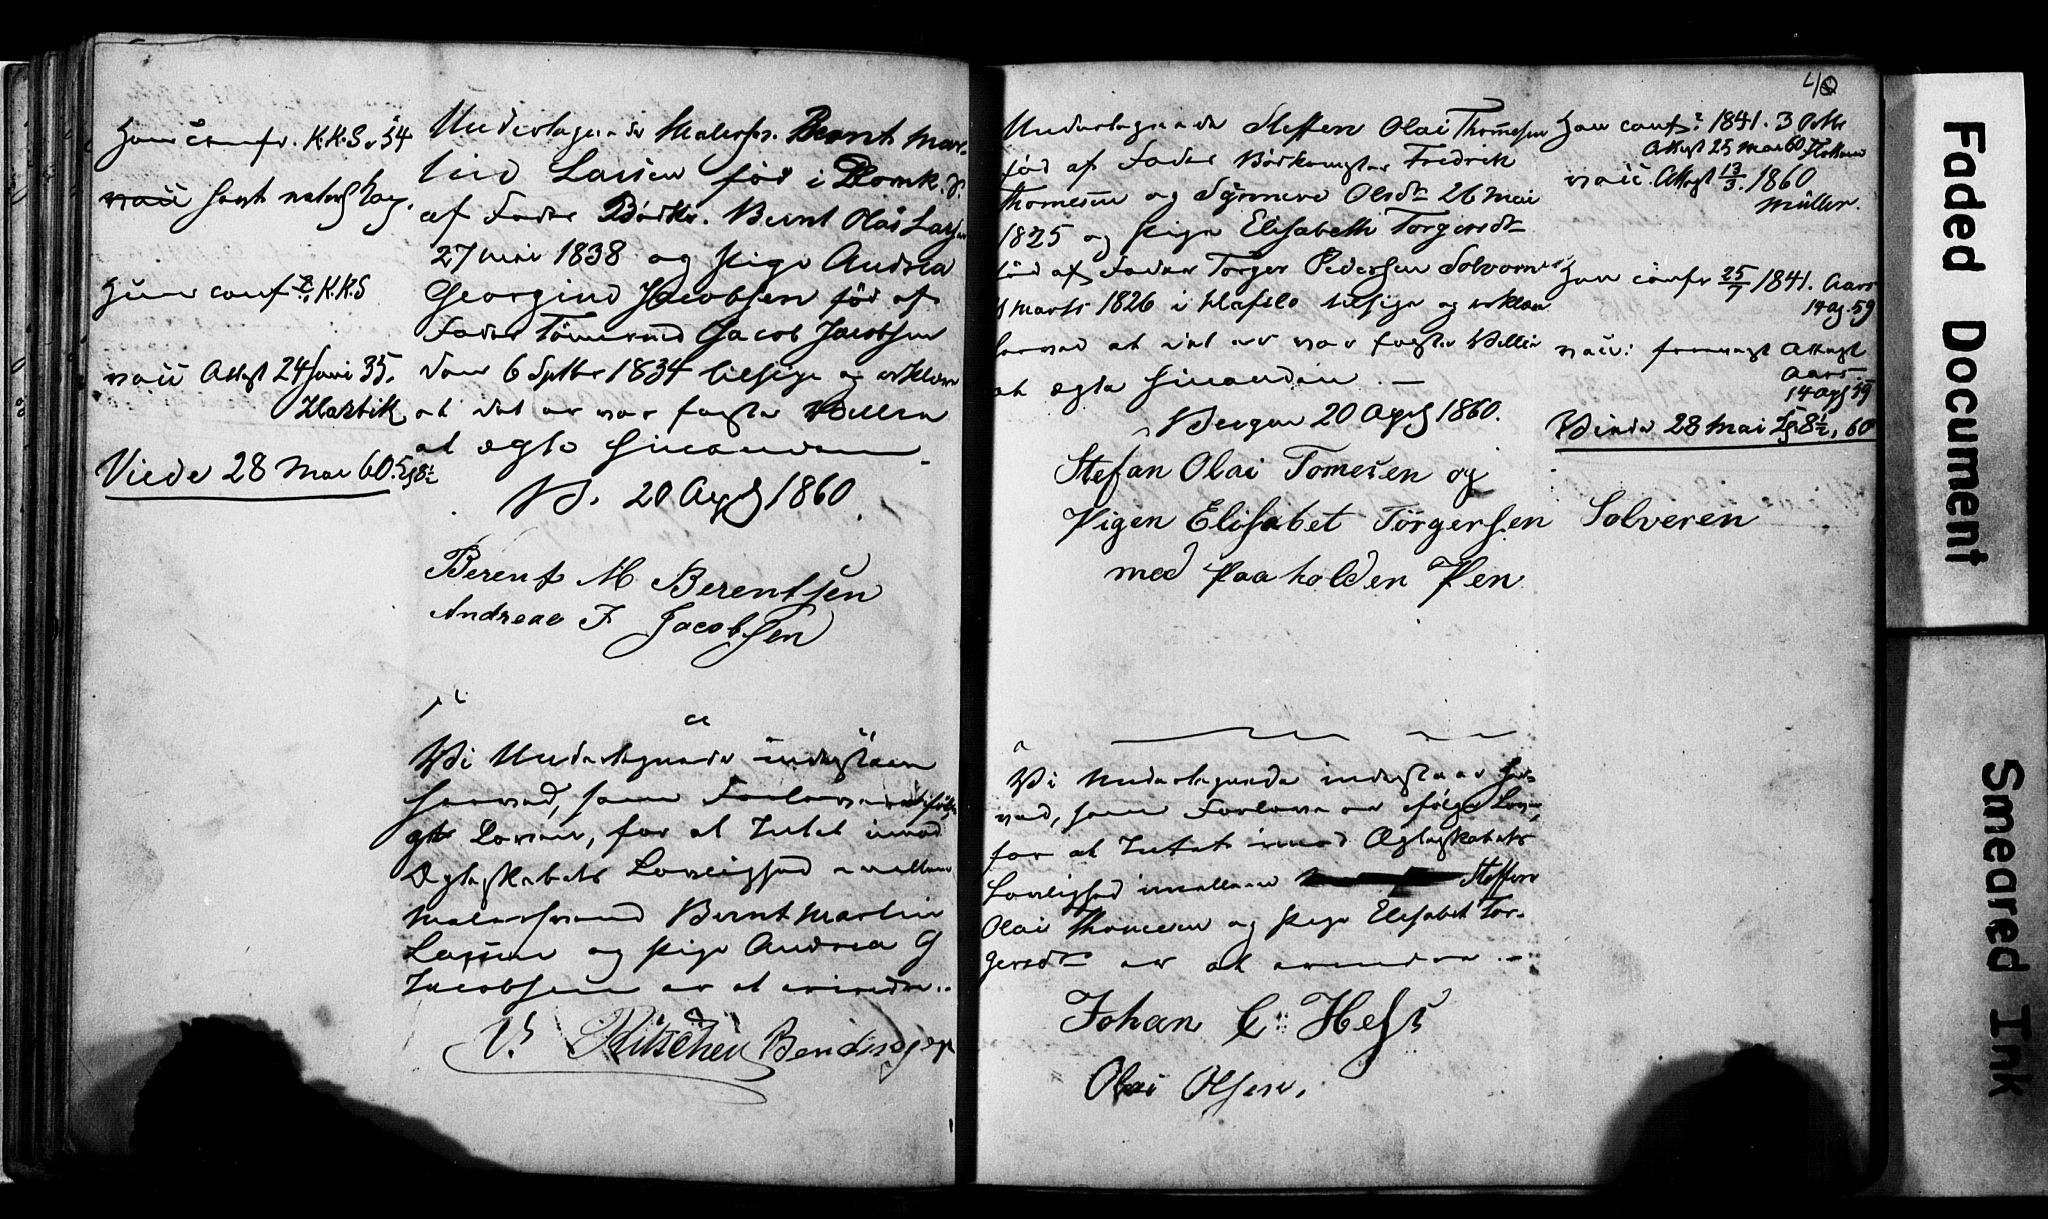 Han confr. K.K.S. 54
vacc
Hun conf K.K.S
vacc Attest 24 Juni 35.
Viede 28 Mai 60.
Undertegnede Malersv. Bernt Mar-
tin Lassen født i Domk.
af Fader Bødkr. Bernt Olai Lassen
27 Mai 1838 og Pige Andrea
Georgine Jacobsen født af
Fader Tømmermd Jacob Jacobsen
den 6 Septbr 1834 tilsige og erklære
at det er vor faste Villie
at ægte hinanden.
B. 20 April 1860.
Berent M Berentsen
Andreae J Jacobsen
Vi Undertegnede indestaaer
herved, som Forlovere ifølge
Loven, for at Intet imod
Ægteskabets Lovlighed imellem
Malersvend Bernt Martin
Lassen og Pige Andrea G
Jacobsen er at erindre.
40
Undertegnede Steffen Olai Thomesen
fød af Fader Fredrik
Thomesen og Olsdtr 26 Mai
1825 og Pige Elisabeth Torgersdtr
fød af Fader Torger Pedersen Solvorn
Marts 1826 i Hafslo tilsige og erklære
herved at det er vor faste Villie
at ægte hinanden.
Bergen 20 April 1860.
Stefan Olai Tomesen og
Pigen Elisabet Törgersen Solveren
med Paaholden Pen
Han conf. 1841. 3 Octbr
Attest 25 Mai 60
vacc. Attest 13/3. 1860
Müller.
Hun confr 25/7 1841. Aars
14 Ap. 59
vacc: Attest
Aars
14 Apr 59
Viede 28 Mai 60
Vi Undertegnede indestaaer her-
ved, som Forlovere ifølge Loven,
for at Intet imod Ægteskabets
Lovlighed imellem Steffen
Olai Thomesen og Pige Elisabet Tor-
gersdtr er at erindre.
Johan C. Hess
Olai Olsen.
Faded Document
Smeared Ink